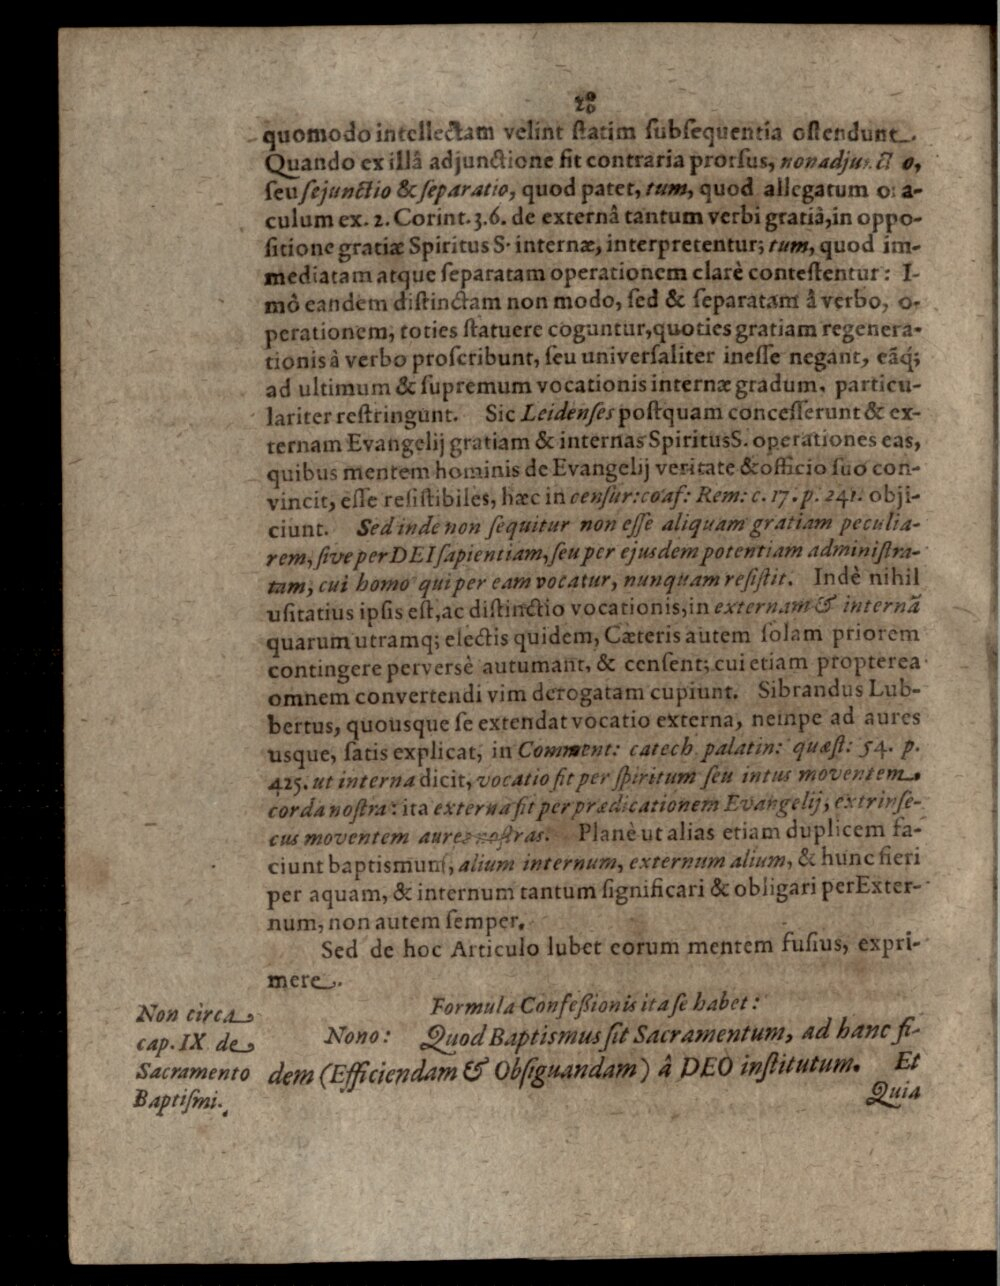 quomodo intellectam velint ſtatim ſubſequentia oſtendunt.
Quando ex illâ adjunctione fit contraria prorſus, non adjunctio,
ſeu ſejunctio & ſeparatio, quod patet, tum, quod allegatum ora-
culum ex. 2. Corint. 3.6. de externâ tantum verbi gratiâ, in oppo-
ſitione gratiæ Spiritus S. internæ, interpretentur; tum, quod im-
mediatam atque ſeparatam operationem clarè conteſtentur: I-
mò eandem diſtinctam non modo, ſed & ſeparatam â verbo, o-
perationem, toties ſtatuere coguntur, quoties gratiam regenera-
tionis à verbo proſcribunt, ſeu univerſaliter ineſſe negant, eãq;
ad ultimum & ſupremum vocationis internæ gradum, particu-
lariter reſtringunt. Sic Leidenſes poſtquam conceſſerunt & ex-
ternam Evangelij gratiam & internas Spiritus S. operationes eas,
quibus mentem hominis de Evangelij veritate & officio ſuo con-
vincit, eſſe reſiſtibiles, hæc in cenſur: coaf: Rem: c. 17. p. 241. obji-
ciunt. Sed inde non ſequitur non eſſe aliquam gratiam peculia-
rem, ſive per DEI ſapientiam, ſeu per ejusdem potentiam adminiſtra-
tam, cui homo qui per eam vocatur, nunquam reſiſtit. Indè nihil
uſitatius ipſis eſt, ac diſtinctio vocationis, in externam & internã
quarum utramq; electis quidem, Cæteris autem ſolam priorem
contingere perversè autumant, & cenſent; cui etiam propterea
omnem convertendi vim derogatam cupiunt. Sibrandus Lub-
bertus, quousque ſe extendat vocatio externa, nempe ad aures
usque, ſatis explicat, in Comment: catech palatin: quæſt: 54. p.
425. ut interna dicit, vocatio fit per ſpiritum ſeu intus moventem
corda noſtra: ita externa fit per prædicationem Evangelij, extrinſe-
cus moventem aures noſtras. Planè ut alias etiam duplicem fa-
ciunt baptismum, alium internum, externum alium, & hunc fieri
per aquam, & internum tantum ſignificari & obligari per Exter-
num, non autem ſemper.
Sed de hoc Articulo lubet eorum mentem fuſius, expri-
mere.
Formula Confeßionis ita ſe habet:
Non circa
cap. IX de
Sacramento
Baptiſmi.
Nono: Quod Baptismus ſit Sacramentum, ad hanc fi-
dem (Efficiendam & Obſiguandam) â DEO inſtitutum. Et
Quia